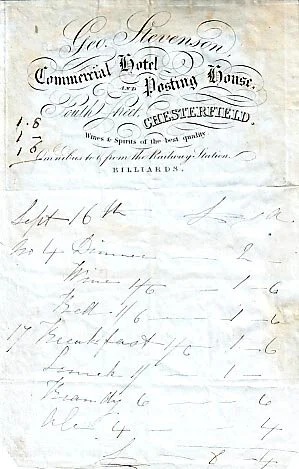 Geo. Stevenson
Commercial Hotel
AND Posting House.
South Street, CHESTERFIELD.
Wines & Spirits of the best quality.
Omnibus to & from the Railway Station.
BILLIARDS.
Sept 16th £ s d
No 4 Dinner 2 -
Wine 1/6 - 1 - 6
Bed 1/6 - 1 - 6
17 Breakfast 1/6 - 1 - 6
Lunch 1/ - 1 -
Brandy 6 - 6
Ale 4 - 4
£ - 8 - 4